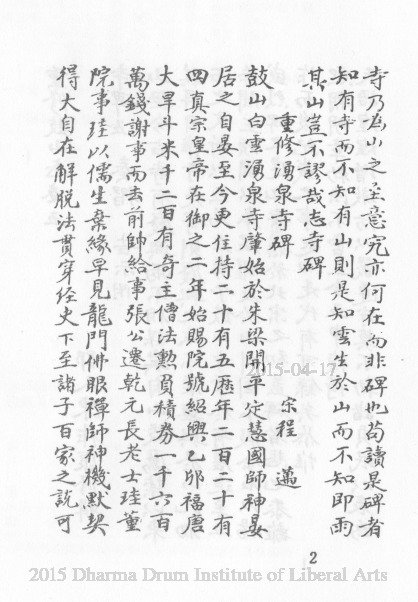 寺乃為山之至意究亦何在而非碑也茍讀是碑者
知有寺而不知有山則是知雲生於山而不知即雨
其山豈不謬哉志寺碑
重修湧泉寺碑
宋程邁
鼓山白雲湧泉寺肇始於朱梁開平定慧國師神晏
居之自晏至今更住持二十有五歷年二百二十有
四真宗皇帝在御之二年始賜院號紹興乙卯福唐
大旱斗米千二百有奇主僧法勲負積券一千六百
萬錢謝事而去前帥給事張公遷乾元長老士珪董
院事珪以儒生棄緣早見龍門佛眼禪師神機默契
得大自在解脫法貫穿經史下至諸子百家之說可
2015-04-17
2
2015 Dharma Drum Institute of Liberal Arts